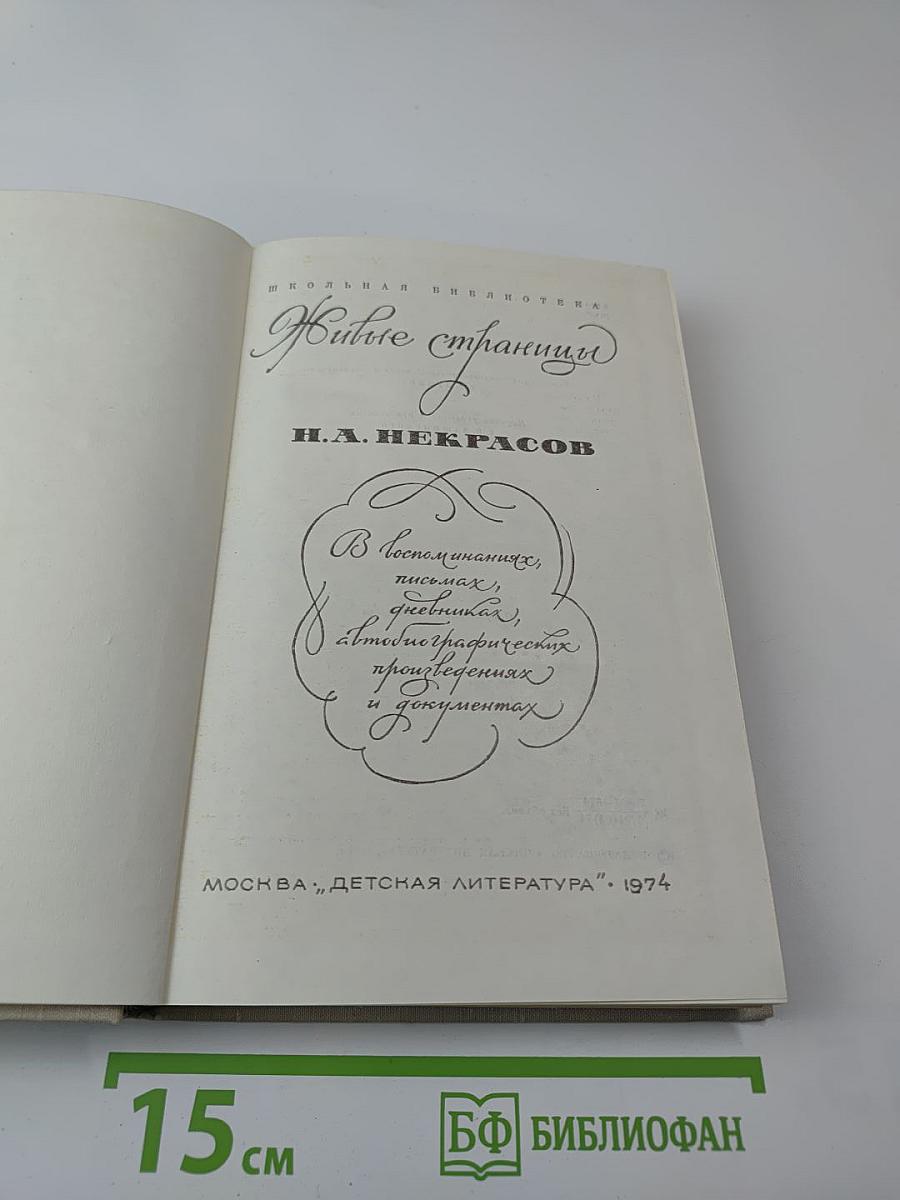 ШКОЛЬНАЯ БИБЛИОТЕКА
Живые страницы
Н. А. НЕКРАСОВ
В воспоминаниях,
письмах,
дневниках,
автобиографических
произведениях
и документах
МОСКВА · „ДЕТСКАЯ ЛИТЕРАТУРА" · 1974
15 см
БФ БИБЛИОФАН